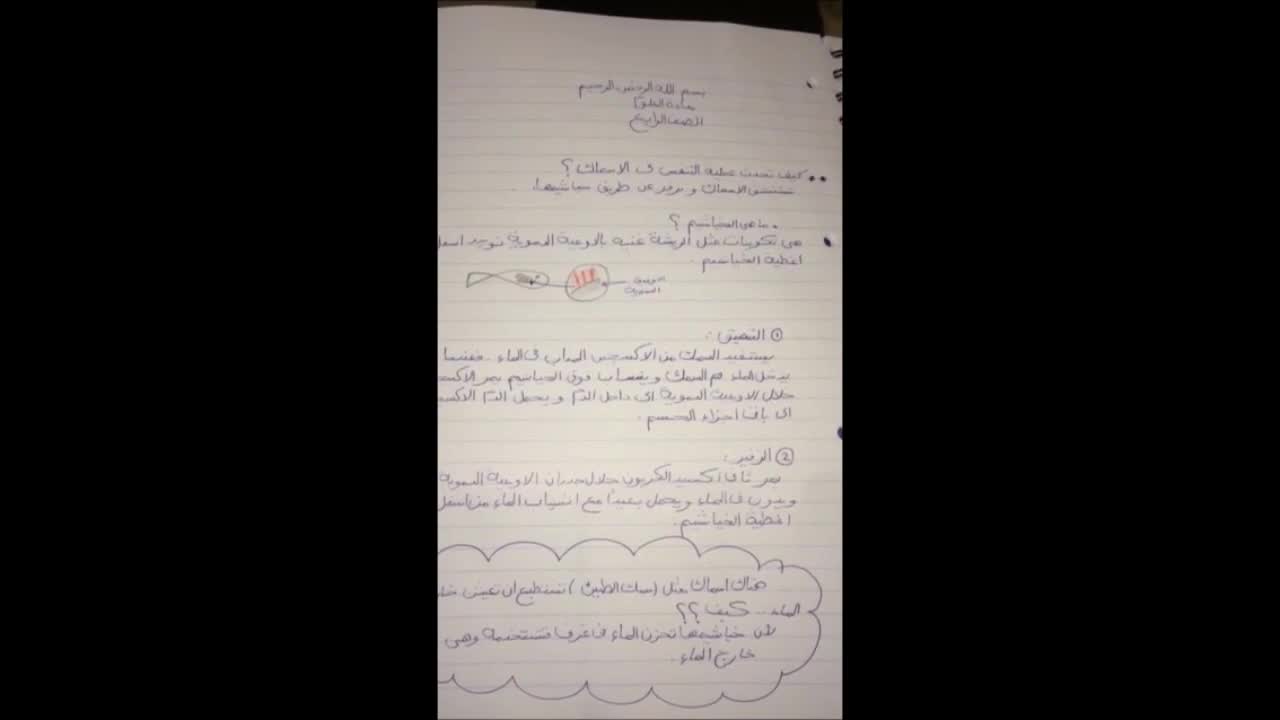 بسم الله الرحمن الرحيم
مادة العلوم
الصف الرابع
كيف تحدث عملية التنفس فى الاسماك ؟
تستنشق الاسماك و تزفر عن طريق خياشيمها.
ما هى الخياشيم ؟
هى تكوينات مثل الريشة غنية بالاوعية الدموية توجد اسفل
اغطية الخياشيم .
الاوعية
الدموية
① الشهيق :
يستفيد السمك من الاكسجين المذاب فى الماء . فعندما
يدخل الماء فم السمك و ينساب فوق الخياشيم يمر الاكسجـ
خلال الاوعية الدموية الى داخل الدم و يحمل الدم الاكسجـ
الى باقى اجزاء الجسم .
② الزفير :
يمر ثانى اكسيد الكربون خلال جدران الاوعية الدموية
و يذوب فى الماء و يحمل بعيداً مع انسياب الماء من اسفل
اغطية الخياشيم.
هناك اسماك مثل (سمك الطين) تستطيع ان تعيش خار
الماء ... كيف ؟؟
لأن خياشيمها تخزن الماء فى غرف فتستخدمه وهى
خارج الماء .